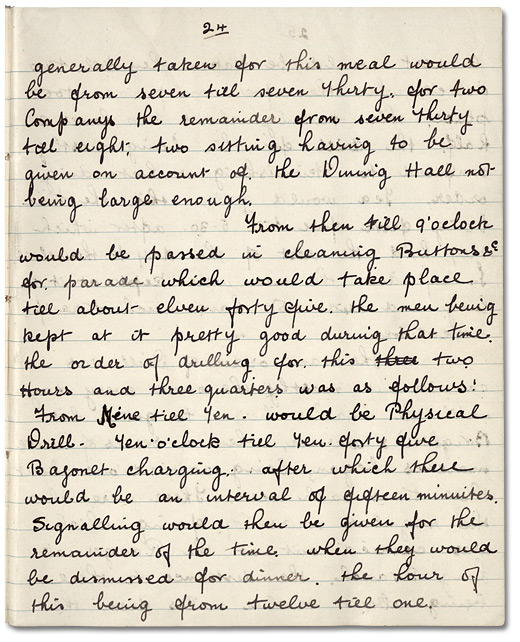 24
generally taken for this meal would
be from seven till seven thirty. for two
Companys the remainder from seven thirty
till eight; two sitting having to be
given on account of. the Dining Hall not
being large enough.
From then till 9'oclock
would be passed in cleaning Buttons &c
for. parade which would take place
till about elven forty five. the men being
kept at it pretty good during that time.
the order of drilling for. this three two
Hours and three quarters was as follows:
From Nine till Ten. would be Physical
Drill. Ten.o'clock till Ten. forty five
Bagonet charging. after which there
would be an interval of fifteen minuites.
Signalling would then be given for the
remainder of the time. when they would
be dismissed for dinner. the hour of
this being from twelve till one.